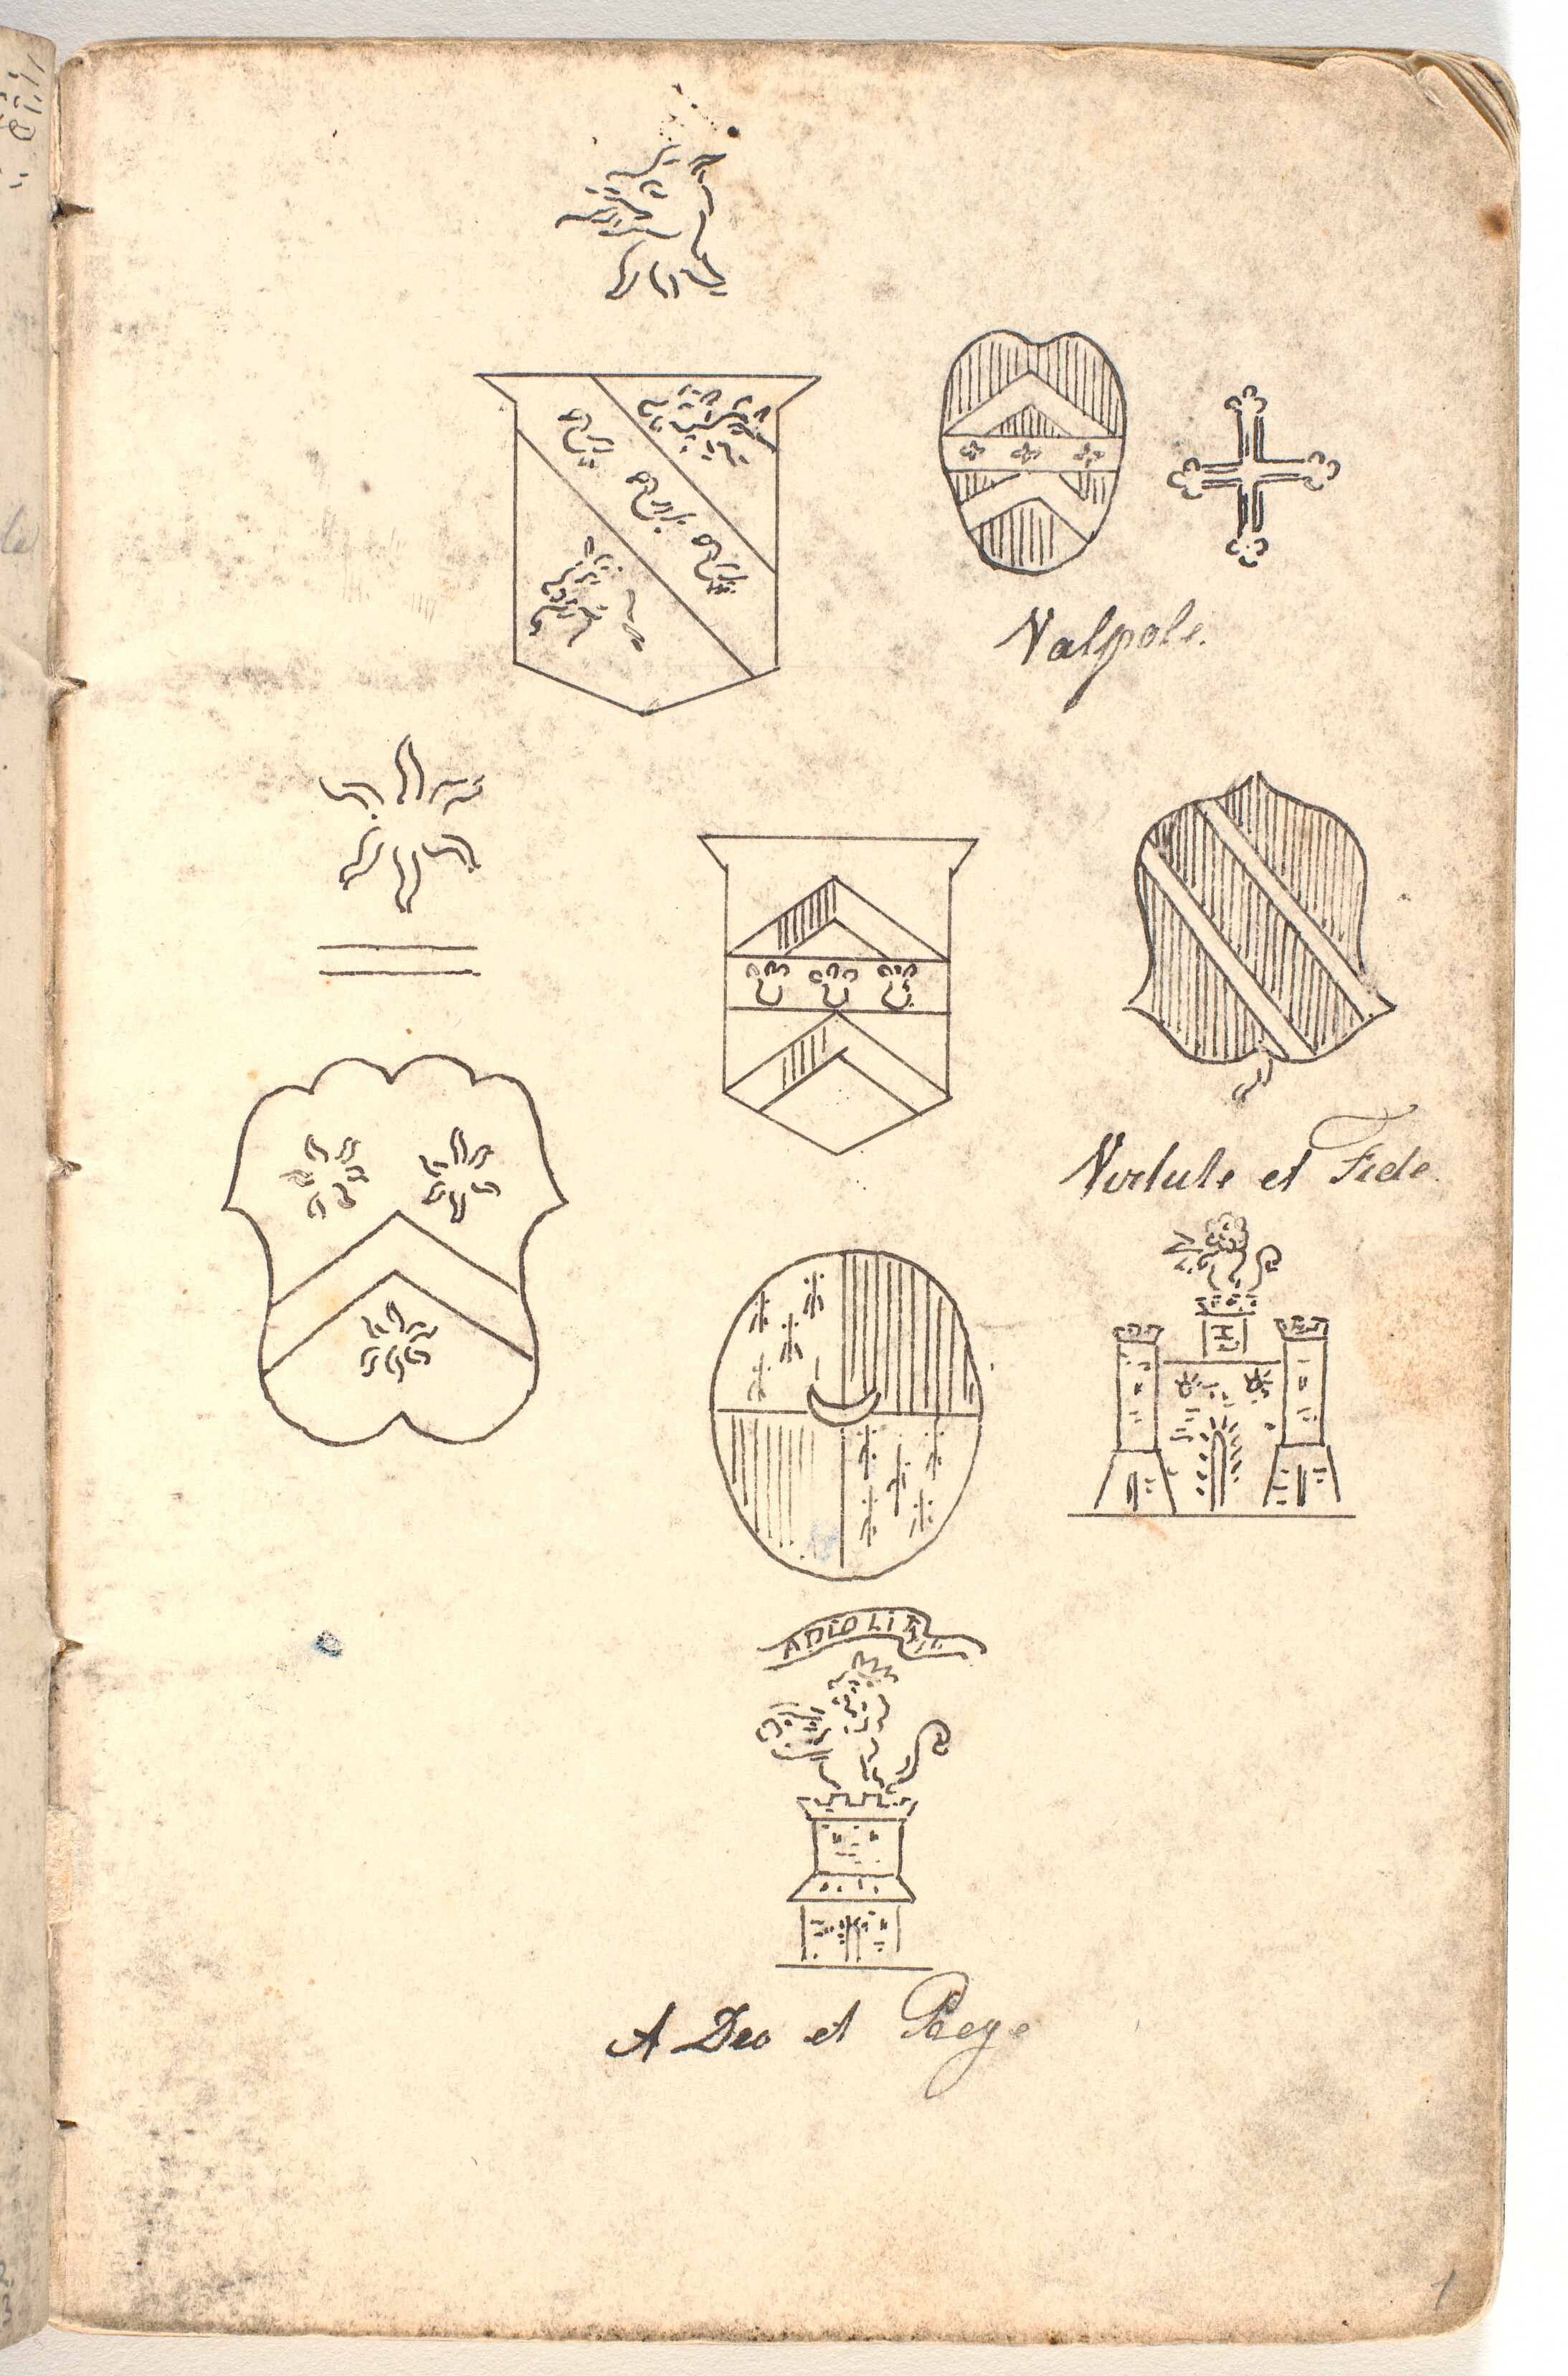 Valpole.
Virtute et Fide.
H
A Deo et Rege
1